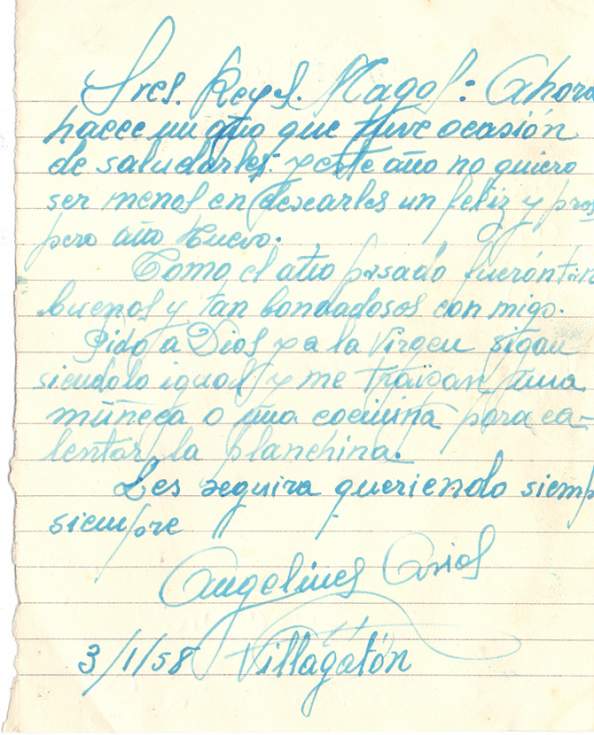 Sres. Reyes. Magos: Ahora
hace un año que tuve ocasión
de saludarles: y este año no quiero
ser menos en desearles un feliz y pros
pero año Nuevo.
Como el año pasado fuerón tan
buenos y tan bondadosos con migo.
Pido a Dios y a la Virgen sigan
siendolo igual y me traigan una
muñeca o una cocinita para ca-
lentar la planchina.
Les seguira queriendo siemp
siempre
Angelines Arias
3/1/58 Villagatón